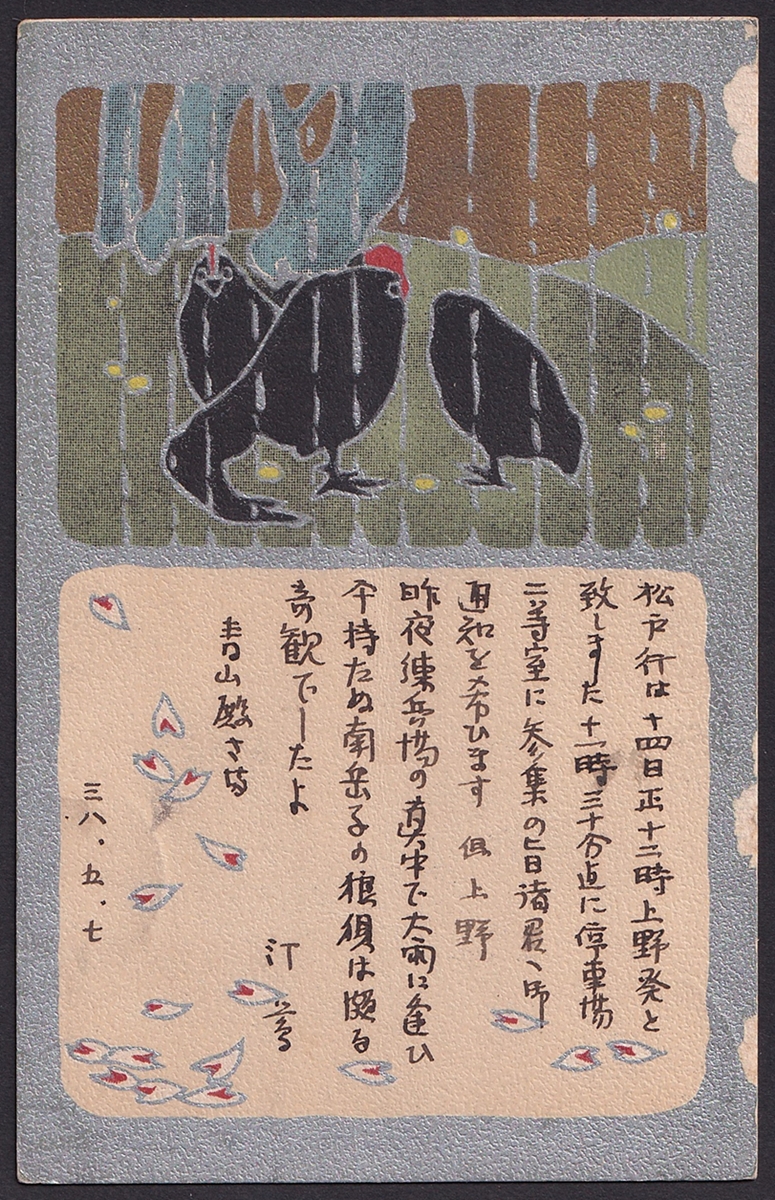 松戸行は十四日正十二時上野発と
致しました十一時三十分迄に停車場
二等室に参集の旨諸君へ御
通知を希ひます 但上野
昨夜練兵場の真中で大雨に逢ひ
傘持たぬ南岳子の狼狽は頗る
奇観でしたよ
汀鶯
青山殿さま
三八、五、七